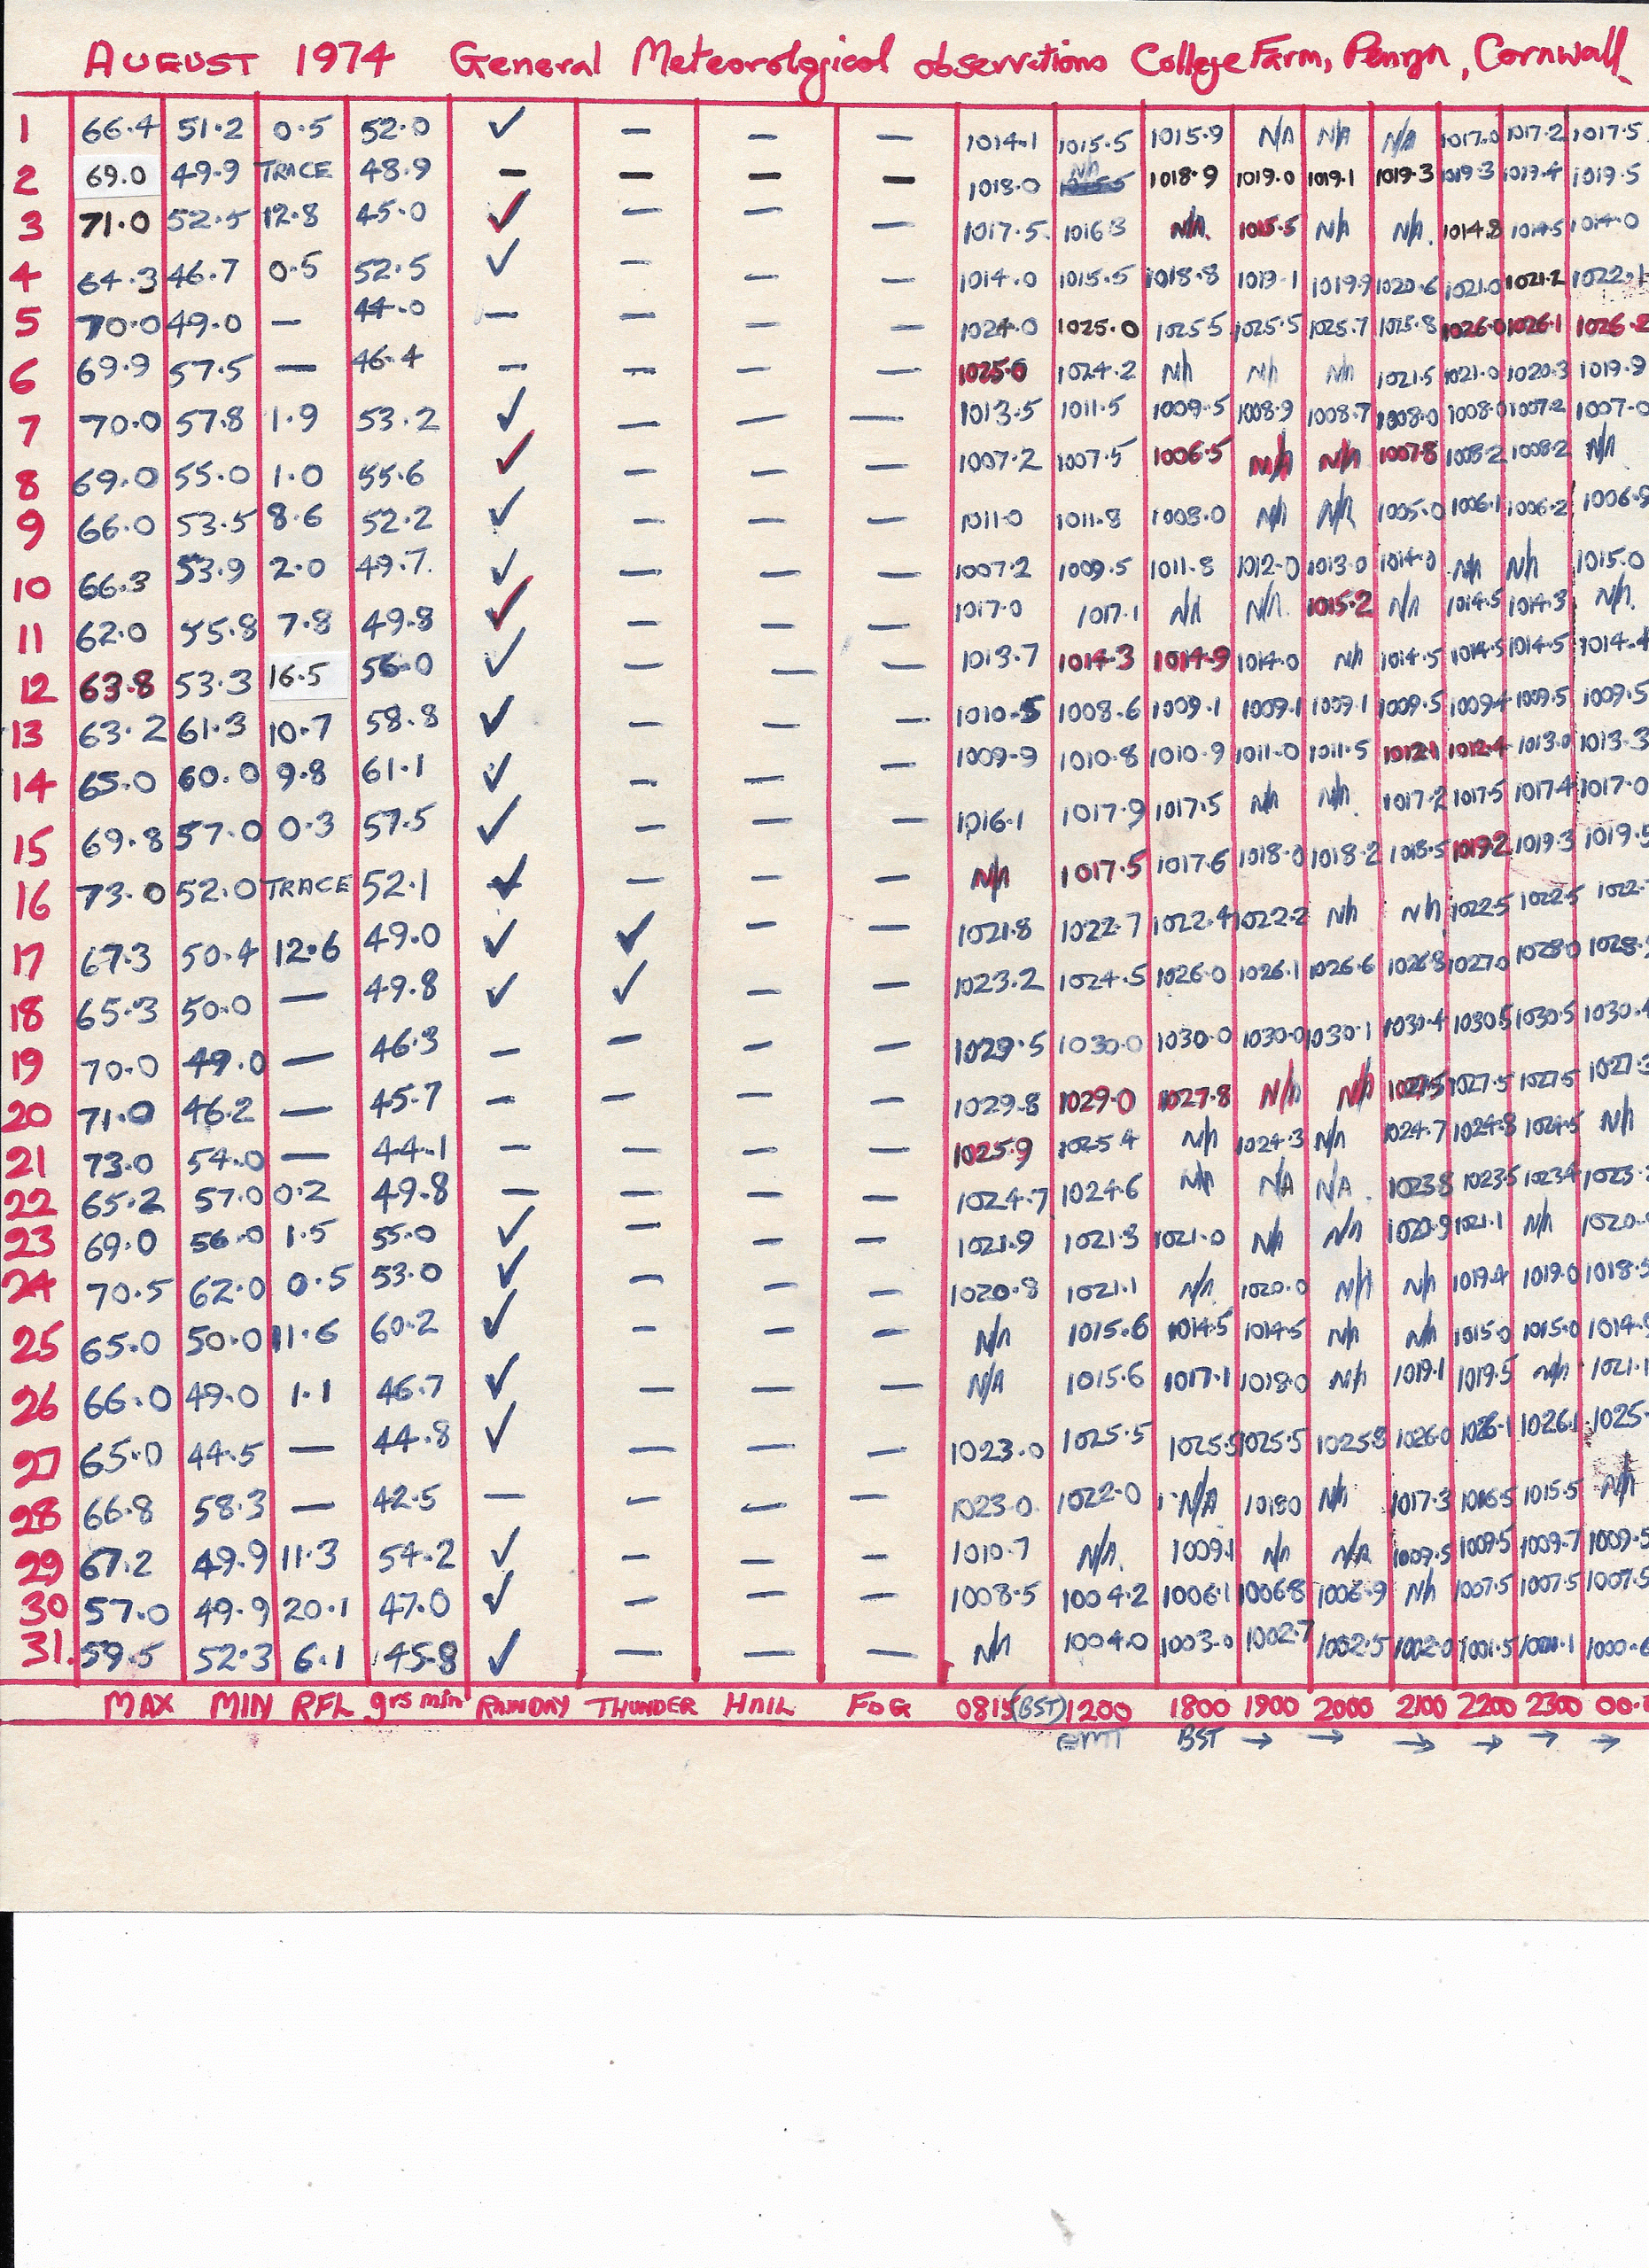 AUGUST 1974 General Meteorological observations College Farm, Penryn, Cornwall
1 66.4 51.2 0.5 52.0 ✓ — — — 1014.1 1015.5 1015.9 N/A N/A N/A 1017.0 1017.2 1017.5
2 69.0 49.9 TRACE 48.9 — — — — 1018.0 N/A 1018.9 1019.0 1019.1 1019.3 1019.3 1019.4 1019.5
3 71.0 52.5 12.8 45.0 ✓ — — — 1017.5 1016.3 N/A 1015.5 N/A N/A 1014.8 1014.5 1014.0
4 64.3 46.7 0.5 52.5 ✓ — — — 1014.0 1015.5 1018.8 1019.1 1019.9 1020.6 1021.0 1021.2 1022.1
5 70.0 49.0 — 44.0 — — — — 1024.0 1025.0 1025.5 1025.5 1025.7 1025.8 1026.0 1026.1 1026.2
6 69.9 57.5 — 46.4 — — — — 1025.0 1024.2 N/A N/A N/A 1021.5 1021.0 1020.3 1019.9
7 70.0 57.8 1.9 53.2 ✓ — — — 1013.5 1011.5 1009.5 1008.9 1008.7 1008.0 1008.0 1007.2 1007.0
8 69.0 55.0 1.0 55.6 ✓ — — — 1007.2 1007.5 1006.5 N/A N/A 1007.8 1008.2 1008.2 N/A
9 66.0 53.5 8.6 52.2 ✓ — — — 1011.0 1011.8 1008.0 N/A N/A 1005.0 1006.1 1006.2 1006.9
10 66.3 53.9 2.0 49.7 ✓ — — — 1007.2 1009.5 1011.8 1012.0 1013.0 1014.0 N/A N/A 1015.0
11 62.0 55.8 7.8 49.8 ✓ — — — 1017.0 1017.1 N/A N/A 1015.2 N/A 1014.5 1014.3 N/A
12 63.8 53.3 16.5 56.0 ✓ — — — 1013.7 1014.3 1014.9 1014.0 N/A 1014.5 1014.5 1014.5 1014.4
13 63.2 61.3 10.7 58.8 ✓ — — — 1010.5 1008.6 1009.1 1009.1 1009.1 1009.5 1009.4 1009.5 1009.5
14 65.0 60.0 9.8 61.1 ✓ — — — 1009.9 1010.8 1010.9 1011.0 1011.5 1012.1 1012.4 1013.0 1013.3
15 69.8 57.0 0.3 57.5 ✓ — — — 1016.1 1017.9 1017.5 N/A N/A 1017.2 1017.5 1017.4 1017.0
16 73.0 52.0 TRACE 52.1 ✓ — — — N/A 1017.5 1017.6 1018.0 1018.2 1018.5 1019.2 1019.3 1019.5
17 67.3 50.4 12.6 49.0 ✓ ✓ — — 1021.8 1022.7 1022.4 1022.2 N/A N/A 1022.5 1022.5 1022.
18 65.3 50.0 — 49.8 ✓ ✓ — — 1023.2 1024.5 1026.0 1026.1 1026.6 1026.8 1027.0 1028.0 1028.
19 70.0 49.0 — 46.3 — — — — 1029.5 1030.0 1030.0 1030.0 1030.1 1030.4 1030.5 1030.5 1030.4
20 71.0 46.2 — 45.7 — — — — 1029.8 1029.0 1027.8 N/A N/A 1027.5 1027.5 1027.5 1027.3
21 73.0 54.0 — 44.1 — — — — 1025.9 1025.4 N/A 1024.3 N/A 1024.7 1024.8 1024.5 N/A
22 65.2 57.0 0.2 49.8 — — — — 1024.7 1024.6 N/A N/A N/A 1023.8 1023.5 1023.4 1023.
23 69.0 56.0 1.5 55.0 ✓ — — — 1021.9 1021.3 1021.0 N/A N/A 1020.9 1021.1 N/A 1020.
24 70.5 62.0 0.5 53.0 ✓ — — — 1020.8 1021.1 N/A 1020.0 N/A N/A 1019.4 1019.0 1018.5
25 65.0 50.0 11.6 60.2 ✓ — — — N/A 1015.6 1014.5 1014.5 N/A N/A 1015.0 1015.0 1014.9
26 66.0 49.0 1.1 46.7 ✓ — — — N/A 1015.6 1017.1 1018.0 N/A 1019.1 1019.5 N/A 1021.1
27 65.0 44.5 — 44.8 ✓ — — — 1023.0 1025.5 1025.5 1025.5 1025.8 1026.0 1026.1 1026.1 1025.
28 66.8 58.3 — 42.5 — — — — 1023.0 1022.0 N/A 1018.0 N/A 1017.3 1016.5 1015.5 N/A
29 67.2 49.9 11.3 54.2 ✓ — — — 1010.7 N/A 1009.1 N/A N/A 1009.5 1009.5 1009.7 1009.5
30 57.0 49.9 20.1 47.0 ✓ — — — 1008.5 1004.2 1006.1 1006.8 1006.9 N/A 1007.5 1007.5 1007.5
31. 59.5 52.3 6.1 45.8 ✓ — — — N/A 1004.0 1003.0 1002.7 1002.5 1002.0 1001.5 1001.1 1000.6
MAX MIN RFL grs min RAINDAY THUNDER HAIL FOG 0815 (BST) 1200 1800 1900 2000 2100 2200 2300 00.
GMT BST → → → → → →